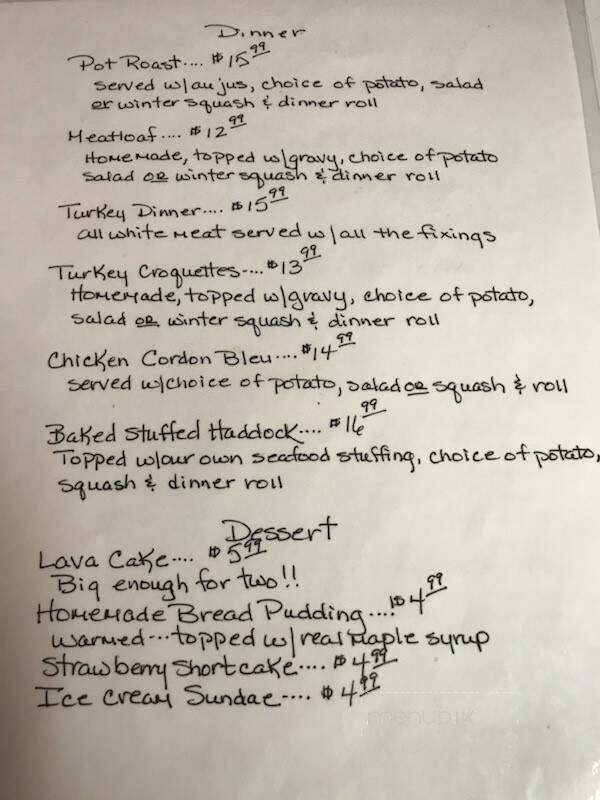 Dinner
Pot Roast.... $15.99
served w/au jus, choice of potato, salad
or winter squash & dinner roll
Meatloaf.... $12.99
Homemade, topped w/gravy, choice of potato
salad or winter squash & dinner roll
Turkey Dinner.... $15.99
all white meat served w/all the fixings
Turkey Croquettes.... $13.99
Homemade, topped w/gravy, choice of potato,
salad or winter squash & dinner roll
Chicken Cordon Bleu.... $14.99
served w/choice of potato, salad or squash & roll
Baked Stuffed Haddock.... $16.99
Topped w/our own seafood stuffing, choice of potato,
squash & dinner roll
Dessert
Lava Cake.... $5.99
Big enough for two!!
Homemade Bread Pudding.... $4.99
warmed...topped w/real maple syrup
Strawberry Shortcake.... $4.99
Ice Cream Sundae.... $4.99
menupix